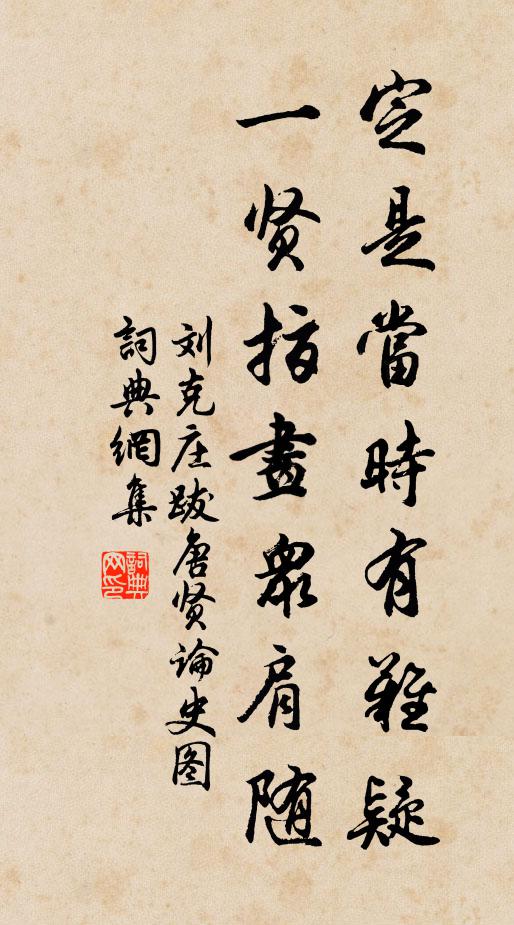 定是當時有難疑
一贤指畫衆肩随
刘克庄跋唐贤论史图
詞典網集
詞典
网印